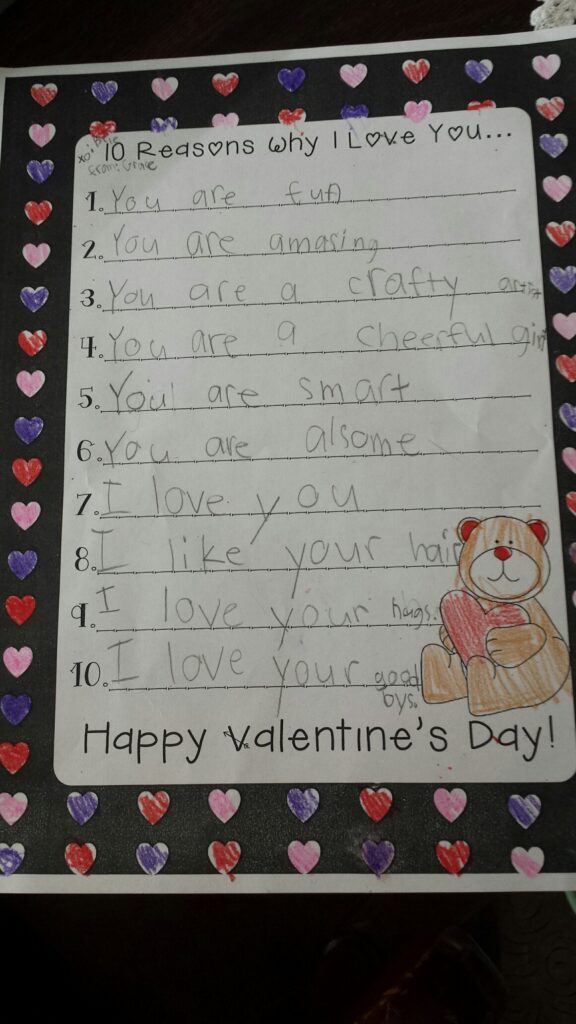 10 Reasons Why I Love You...
from: Grace
1. You are fun
2. You are amasing
3. You are a crafty artist
4. You are a cheerful girl
5. You are smart
6. You are alsome
7. I love you
8. I like your hair
9. I love your hugs.
10. I love your good
bys.
Happy Valentine's Day!